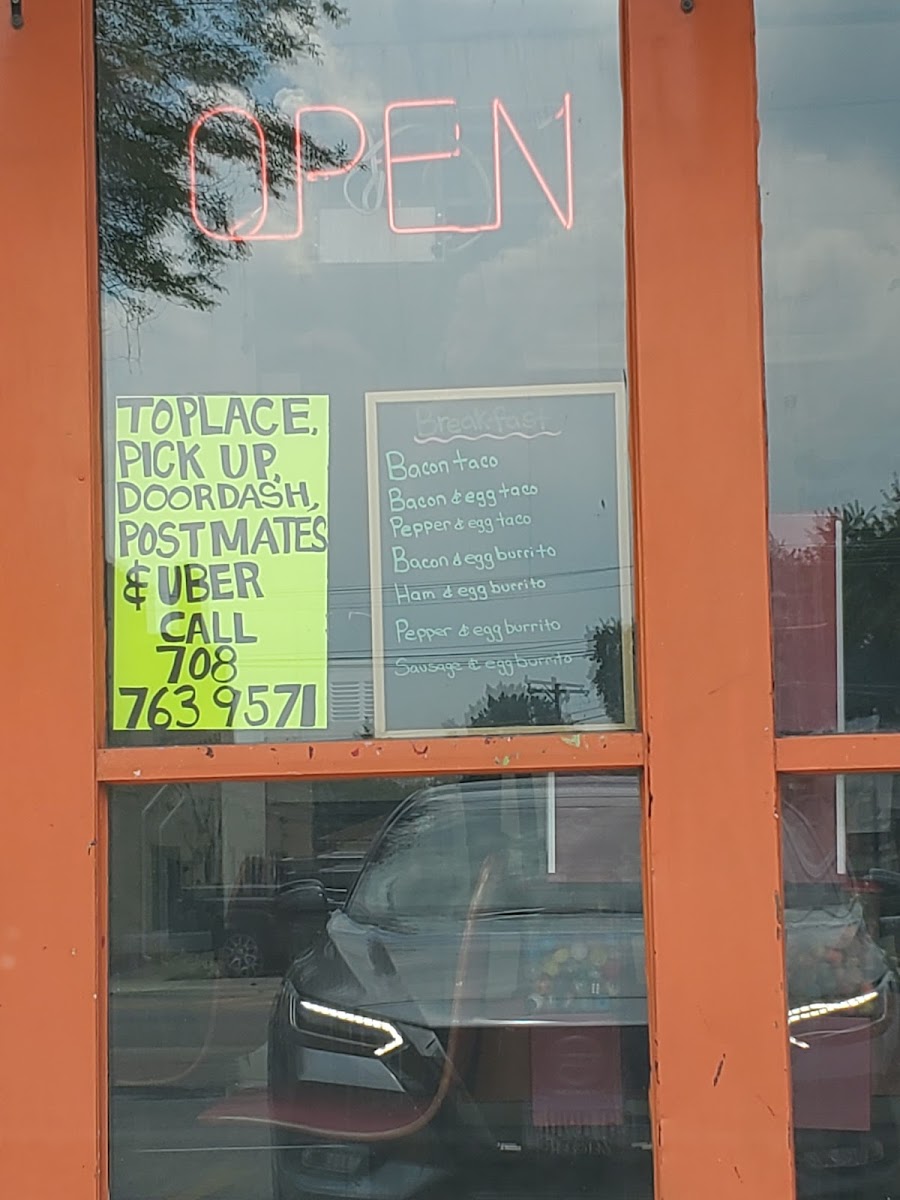 OPEN
TO PLACE,
PICK UP,
DOORDASH,
POSTMATES
& UBER
CALL
708
763 9571
Breakfast
Bacon taco
Bacon & egg taco
Pepper & egg taco
Bacon & egg burrito
Ham & egg burrito
Pepper & egg burrito
Sausage & egg burrito